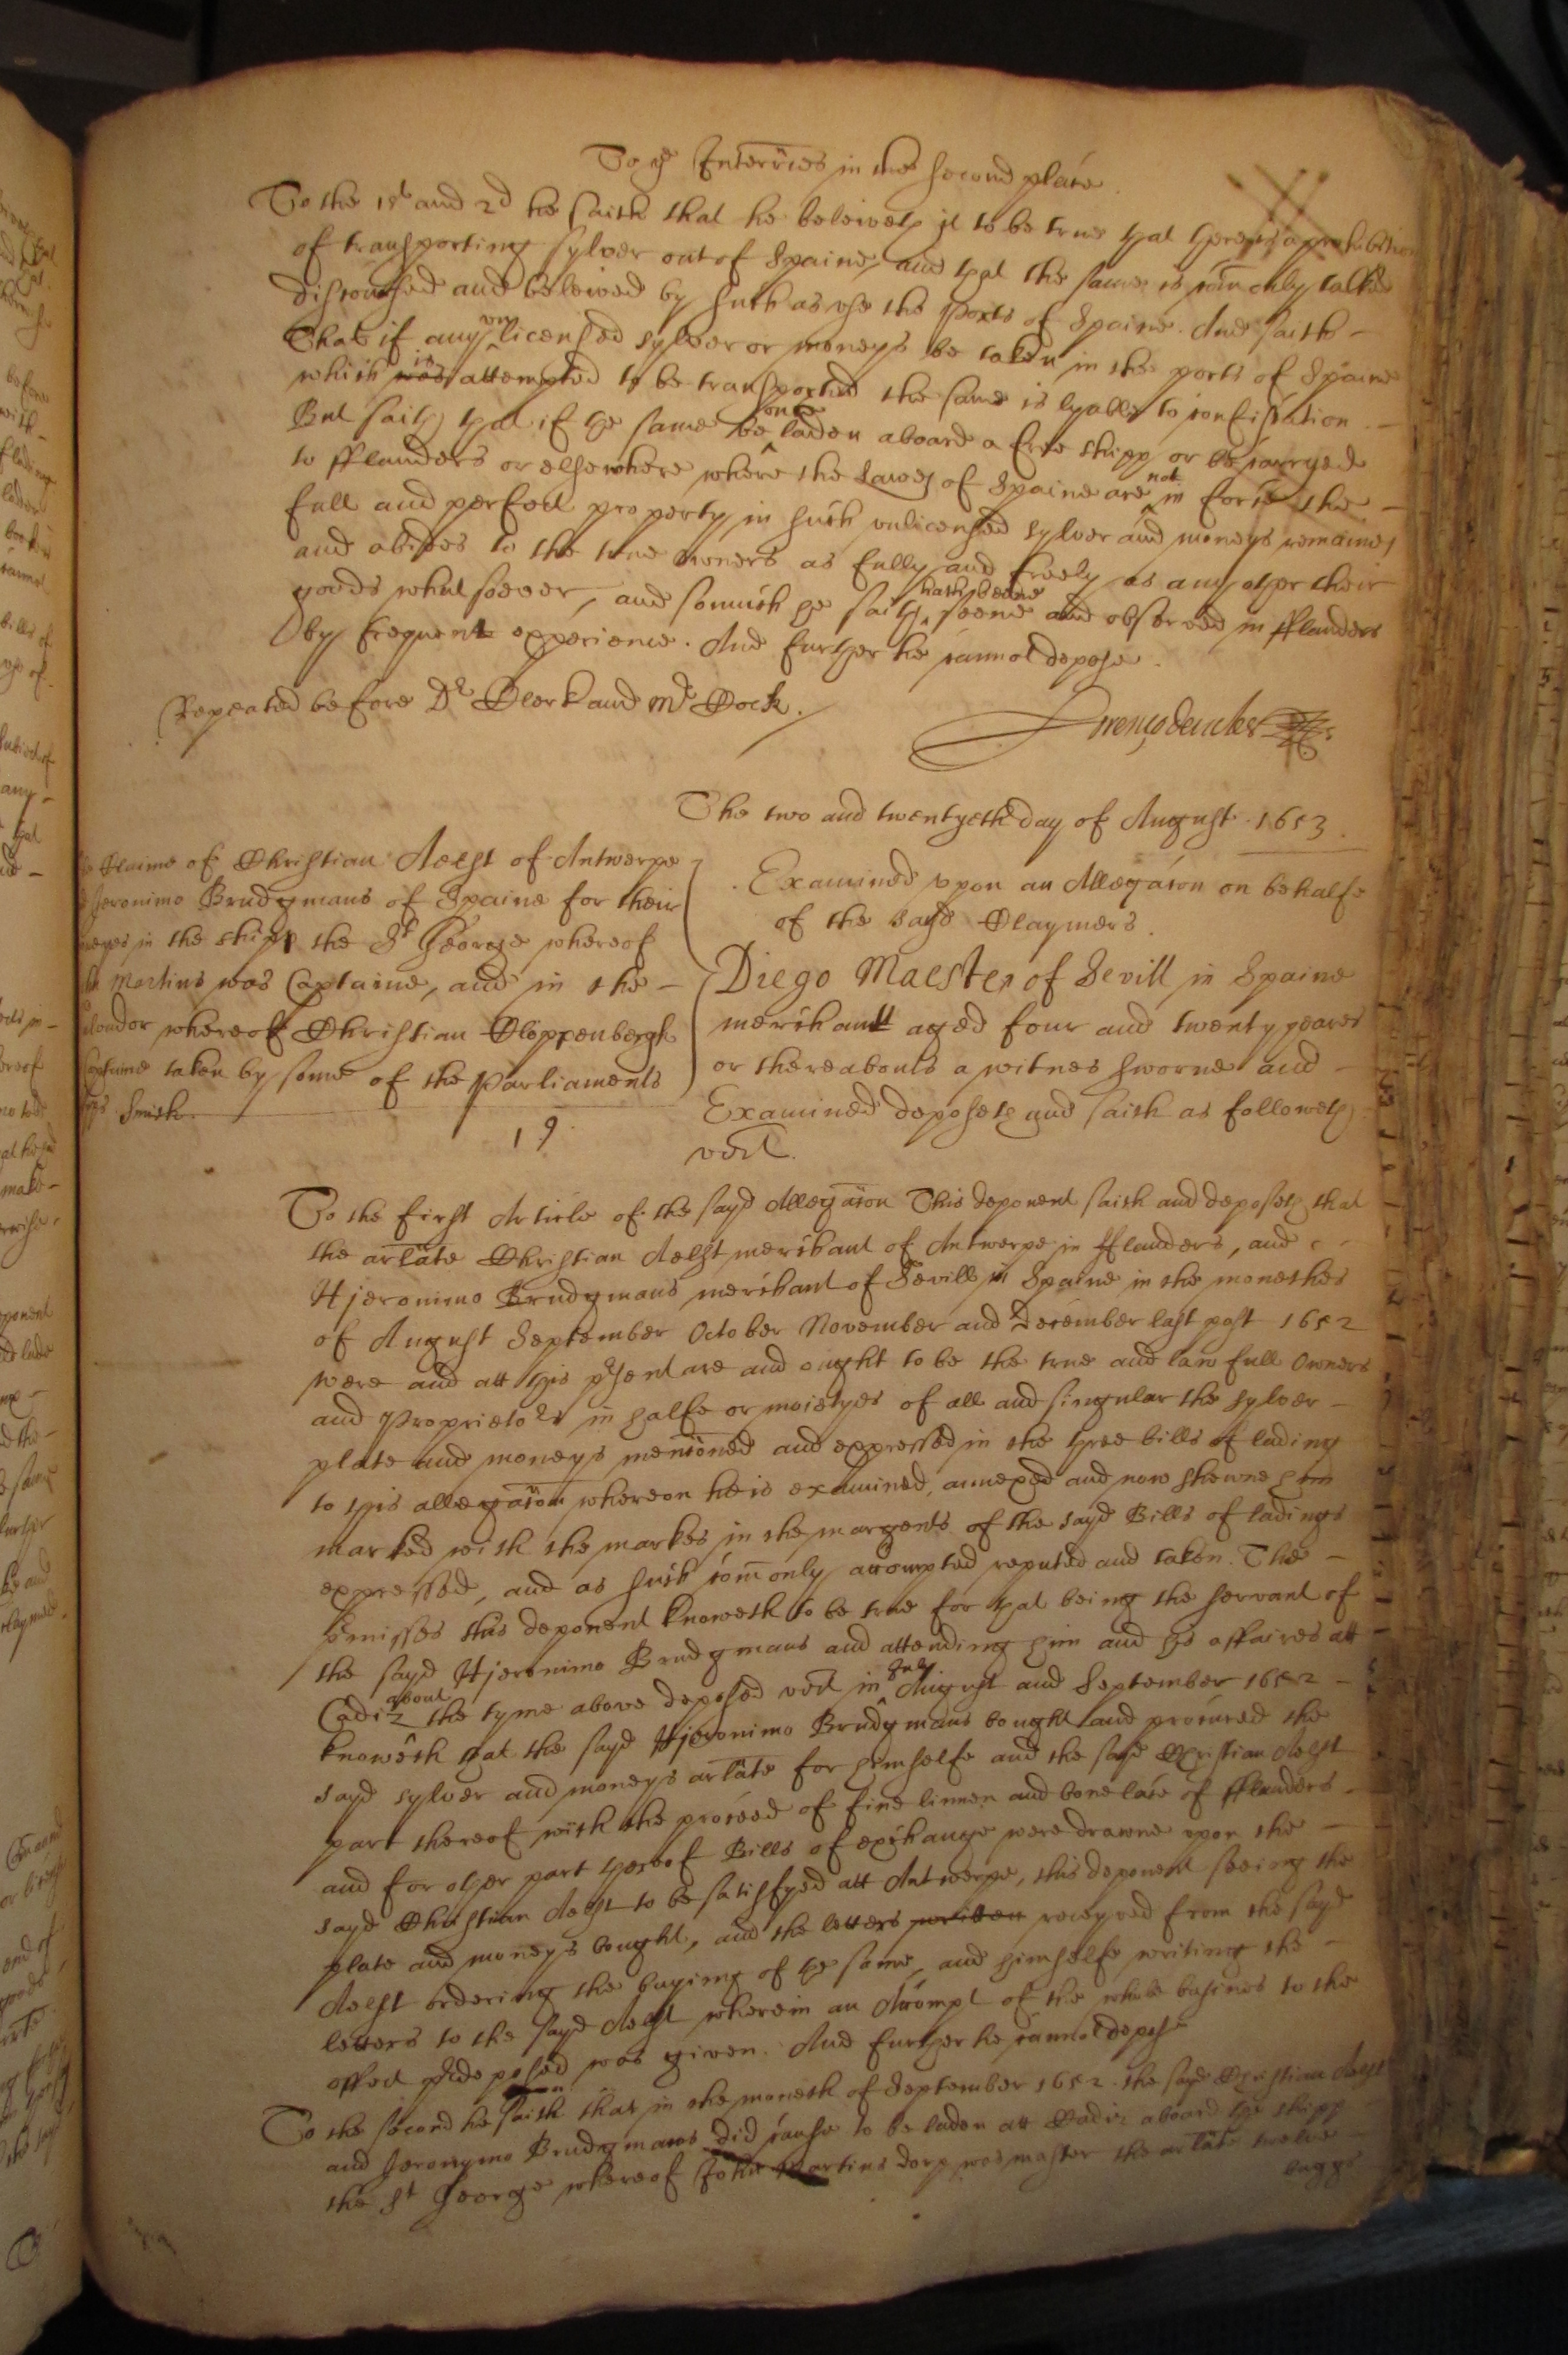 To ye Interr̃ies in the second place.
To the 1st and 2d he saith that he beleiveth it to be true that there is a prohibition
of transporting sylver out of Spaine, and that the same is com̃only talked
discoursed and beleived by such as use the ports of Spaine. And saith -
That if any un licensed sylver or moneys be taken in the ports of Spaine
which was is attempted to be transported the same is lyable to confiscation. -
But saith that if the same be once laden aboard a free shipp or be carryed
to fflanders or elsewhere where the Lawes of Spaine are not in force the -
full and perfect property in such unlicensed sylver and moneys remaines
and abides to the true owners as fully and freely as any other their
goods whatsoever, and somuch he saith hath beene seene and observed in fflanders
by frequent experience. And further he cannot depose.
Repeated before Dr Clerk and Mr Cock.
The two and twentyeth day of August 1653.
Claime of Christian Aelst of Antwerpe
Jeronimo Brudgmans of Spaine for their
in the shipp the St George whereof
Martins was Captaine, and in the -
whereof Christian Cloppenbergh
taken by some of the Parliaments
Smith.
19
Examined upon an Allegãcon on behalfe
of the sayd Claymers.
Diego Maester of Sevill in Spaine
merchant aged four and twenty yeares
or thereabouts a witnes sworne and -
Examined deposeth and saith as followeth
vizt.
To the first Article of the sayd Allegãcon This deponent saith and deposeth that
the arlãte Christian Aelst merchant of Antwerpe in fflanders, and
Hjeronimo Brudgmans merchant of Sevill in Spaine in the monethes
of August September October November and December last past 1652
were and att this p̃sent are and ought to be the true and lawfull Owners
and Proprietors in halfe or moietyes of all and singular the sylver -
plate and moneys menc̃oned and expressed in the three bills of lading
to this allegãcon whereon he is examined, annexed and now shewne him
marked with the markes in the margents of the sayd Bills of ladings
expressed, and as such com̃only accompted reputed and taken. The -
p̃misses this deponent knoweth to be true for that being the servant of
the sayd Hjeronimo Brudgmans and attending him and his affaires att
Cadiz about the tyme above deposed vizt in July August and September 1652 -
knoweth that the sayd Hjeronimo Brudgmans bought and procured the
sayd sylver and moneys arlãte for himselfe and the sayd Christian Aelst
part thereof with the proceed of fine linnen and bone lace of fflanders -
and for other part thereof Bills of exchange were drawne upon the -
sayd Christian Aelst to be satisfyed att Antwerpe, this deponent seeing the
plate and moneys bought, and the letters written receyved from the sayd
Aelst ordering the buying of the same, and himselfe writing the -
letters to the sayd Aelst wherein an Accompt of the whole busines to the
effect p̃deposed was given. And further he cannot depose
To the second he saith that in the moneth of September 1652 the sayd Christian Aelst
and Jeronymo Brudgmans did cause to be laden att Cadiz aboard the shipp
the St George whereof John Martins dorp was master the arlãte twelve -
baggs